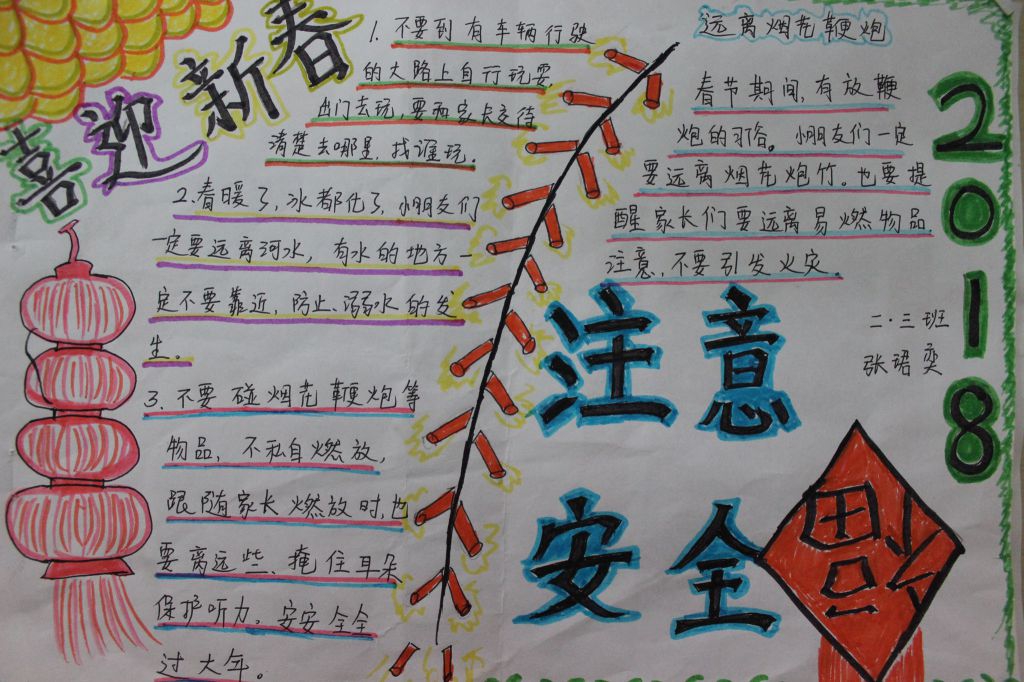 喜迎新春
1. 不要到有车辆行驶
的大路上自行玩耍,
出门去玩,要和家长交待
清楚去哪里,找谁玩.
2.春暖了,冰都化了,小朋友们
一定要远离河水,有水的地方一
定不要靠近,防止、溺水的发
生。
3.不要碰烟花鞭炮等
物品,不私自燃放,
跟随家长燃放时,也
要离远些、掩住耳朵
保护听力。安安全全
过大年。
远离烟花鞭炮
春节期间,有放鞭
炮的习俗。小朋友们一定
要远离烟花炮竹。也要提
醒家长们要远离易燃物品.
注意,不要引发火灾.
2018
二·三班
张珺奕
注意
安全
福